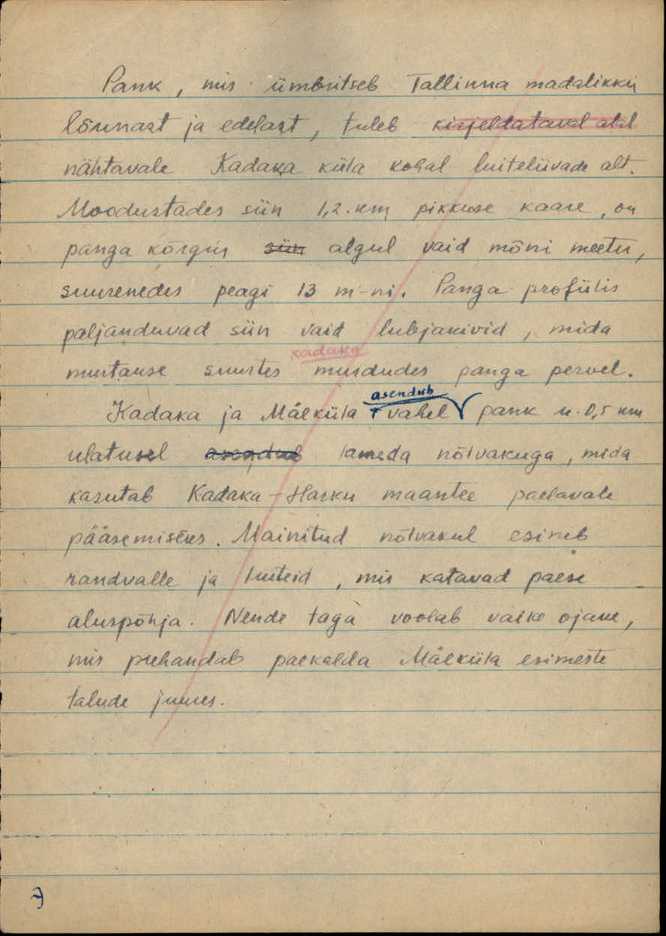 Pank, mis ümbritseb Tallinna madalikku
lõunast ja edelast, tuleb kirjeldataval alal
nähtavale Kadaka küla kohal luiteliivade alt.
Moodustades siin 1,2 km pikkuse kaare, on
panga kõrgus siin algul vaid mõni meeter,
suurenedes peagi 13 m-ni. Panga profiilis
paljanduvad siin vaid lubjakivid, mida
kadaka
murtakse suurtes murdudes panga pervel.
asendub
Kadaka ja Mäeküla vahel pank u. 0,5 km
ulatusel asendub lameda nõlvakuga, mida
kasutab Kadaka-Harku maantee paelavale
pääsemiseks. Mainitud nõlvakul esineb
randvalle ja luiteid, mis katavad paese
aluspõhja. Nende taga voolab väike ojake,
mis puhandab paekalda Mäeküla esimeste
talude juures.